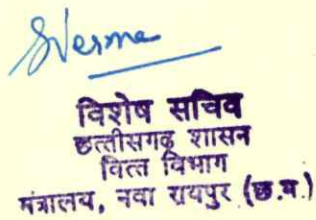 SVerma
विशेष सचिव
छत्तीसगढ़ शासन
वित्त विभाग
मंत्रालय, नवा रायपुर (छ.ग.)